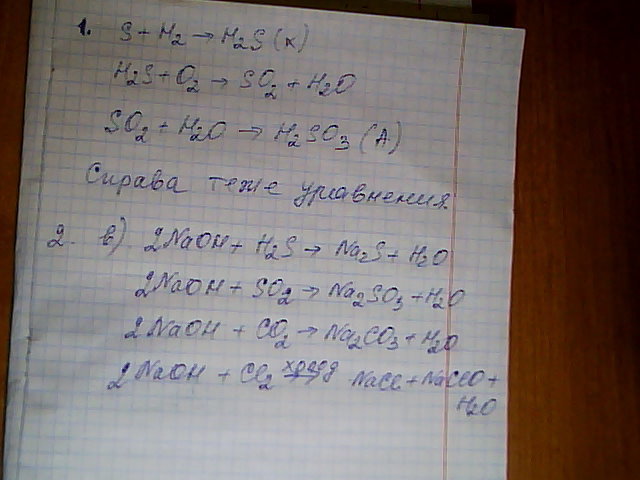 1. S + H2 → H2S (X)
H2S + O2 → SO2 + H2O
SO2 + H2O → H2SO3 (A)
Справа теже уравнения.
2. в) 2NaOH + H2S → Na2S + H2O
2NaOH + SO2 → Na2SO3 + H2O
2NaOH + CO2 → Na2CO3 + H2O
2NaOH + Cl2 холод → NaCl + NaClO +
H2O